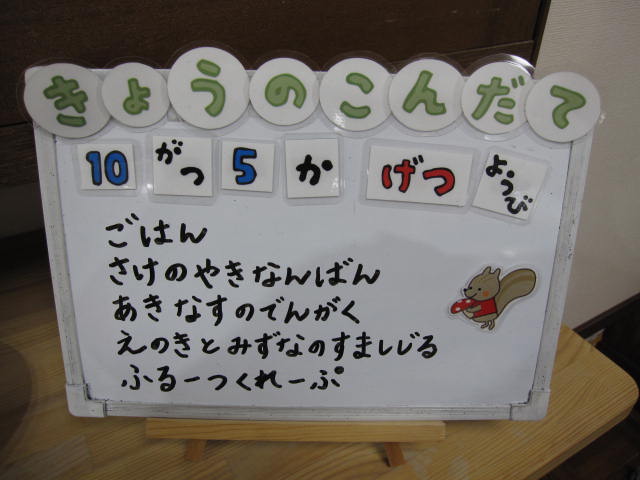 きょうのこんだて
10 がつ 5 か げつ ようび
ごはん
さけのやきなんばん
あきなすのでんがく
えのきとみずなのすましじる
ふるーつくれーぷ